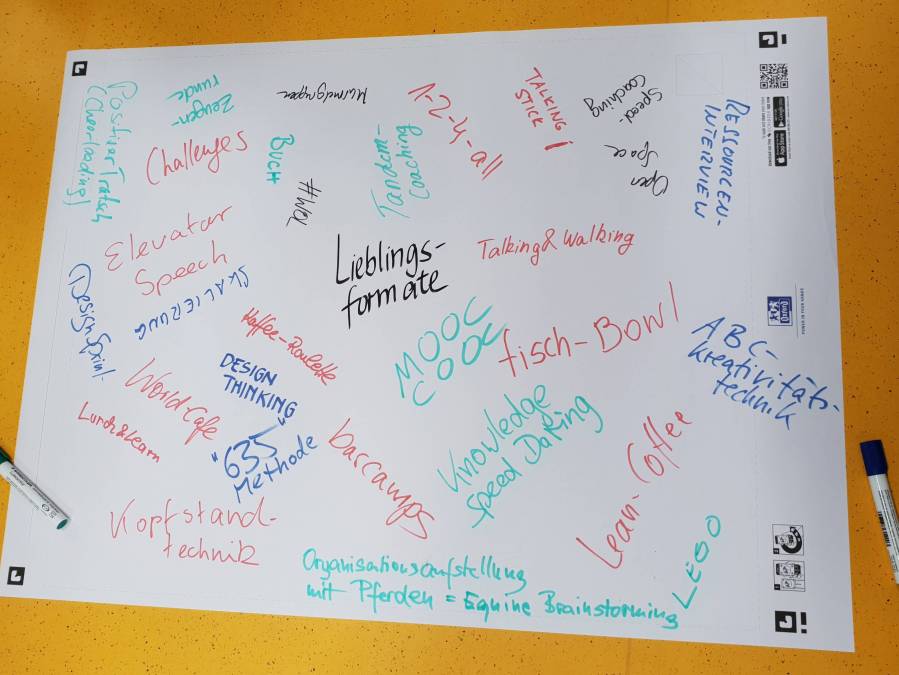 Positiver Tratsch
(Cheerleading)
Zeugen-
runde
Challenges
BUCH
#WOL
Tandem-
coaching
1-2-4-all
TALKING
STICK
Speed-
coaching
Open
Space
RESSOURCEN-
INTERVIEW
Elevator
Speech
SKALIERUNG
Lieblings-
formate
Talking&Walking
Design Sprint-
Kaffee-Roulette
DESIGN
THINKING
MOOC
COOC
fisch-Bowl
ABC-
kreativitäts-
technik
World Cafe
Lunch&Learn
"635"
Methode
barcamps
Knowledge
Speed Dating
Lean-Coffee
Kopfstand-
technik
Organisationsaufstellung
mit Pferden = Equine Brainstorming
LEGO